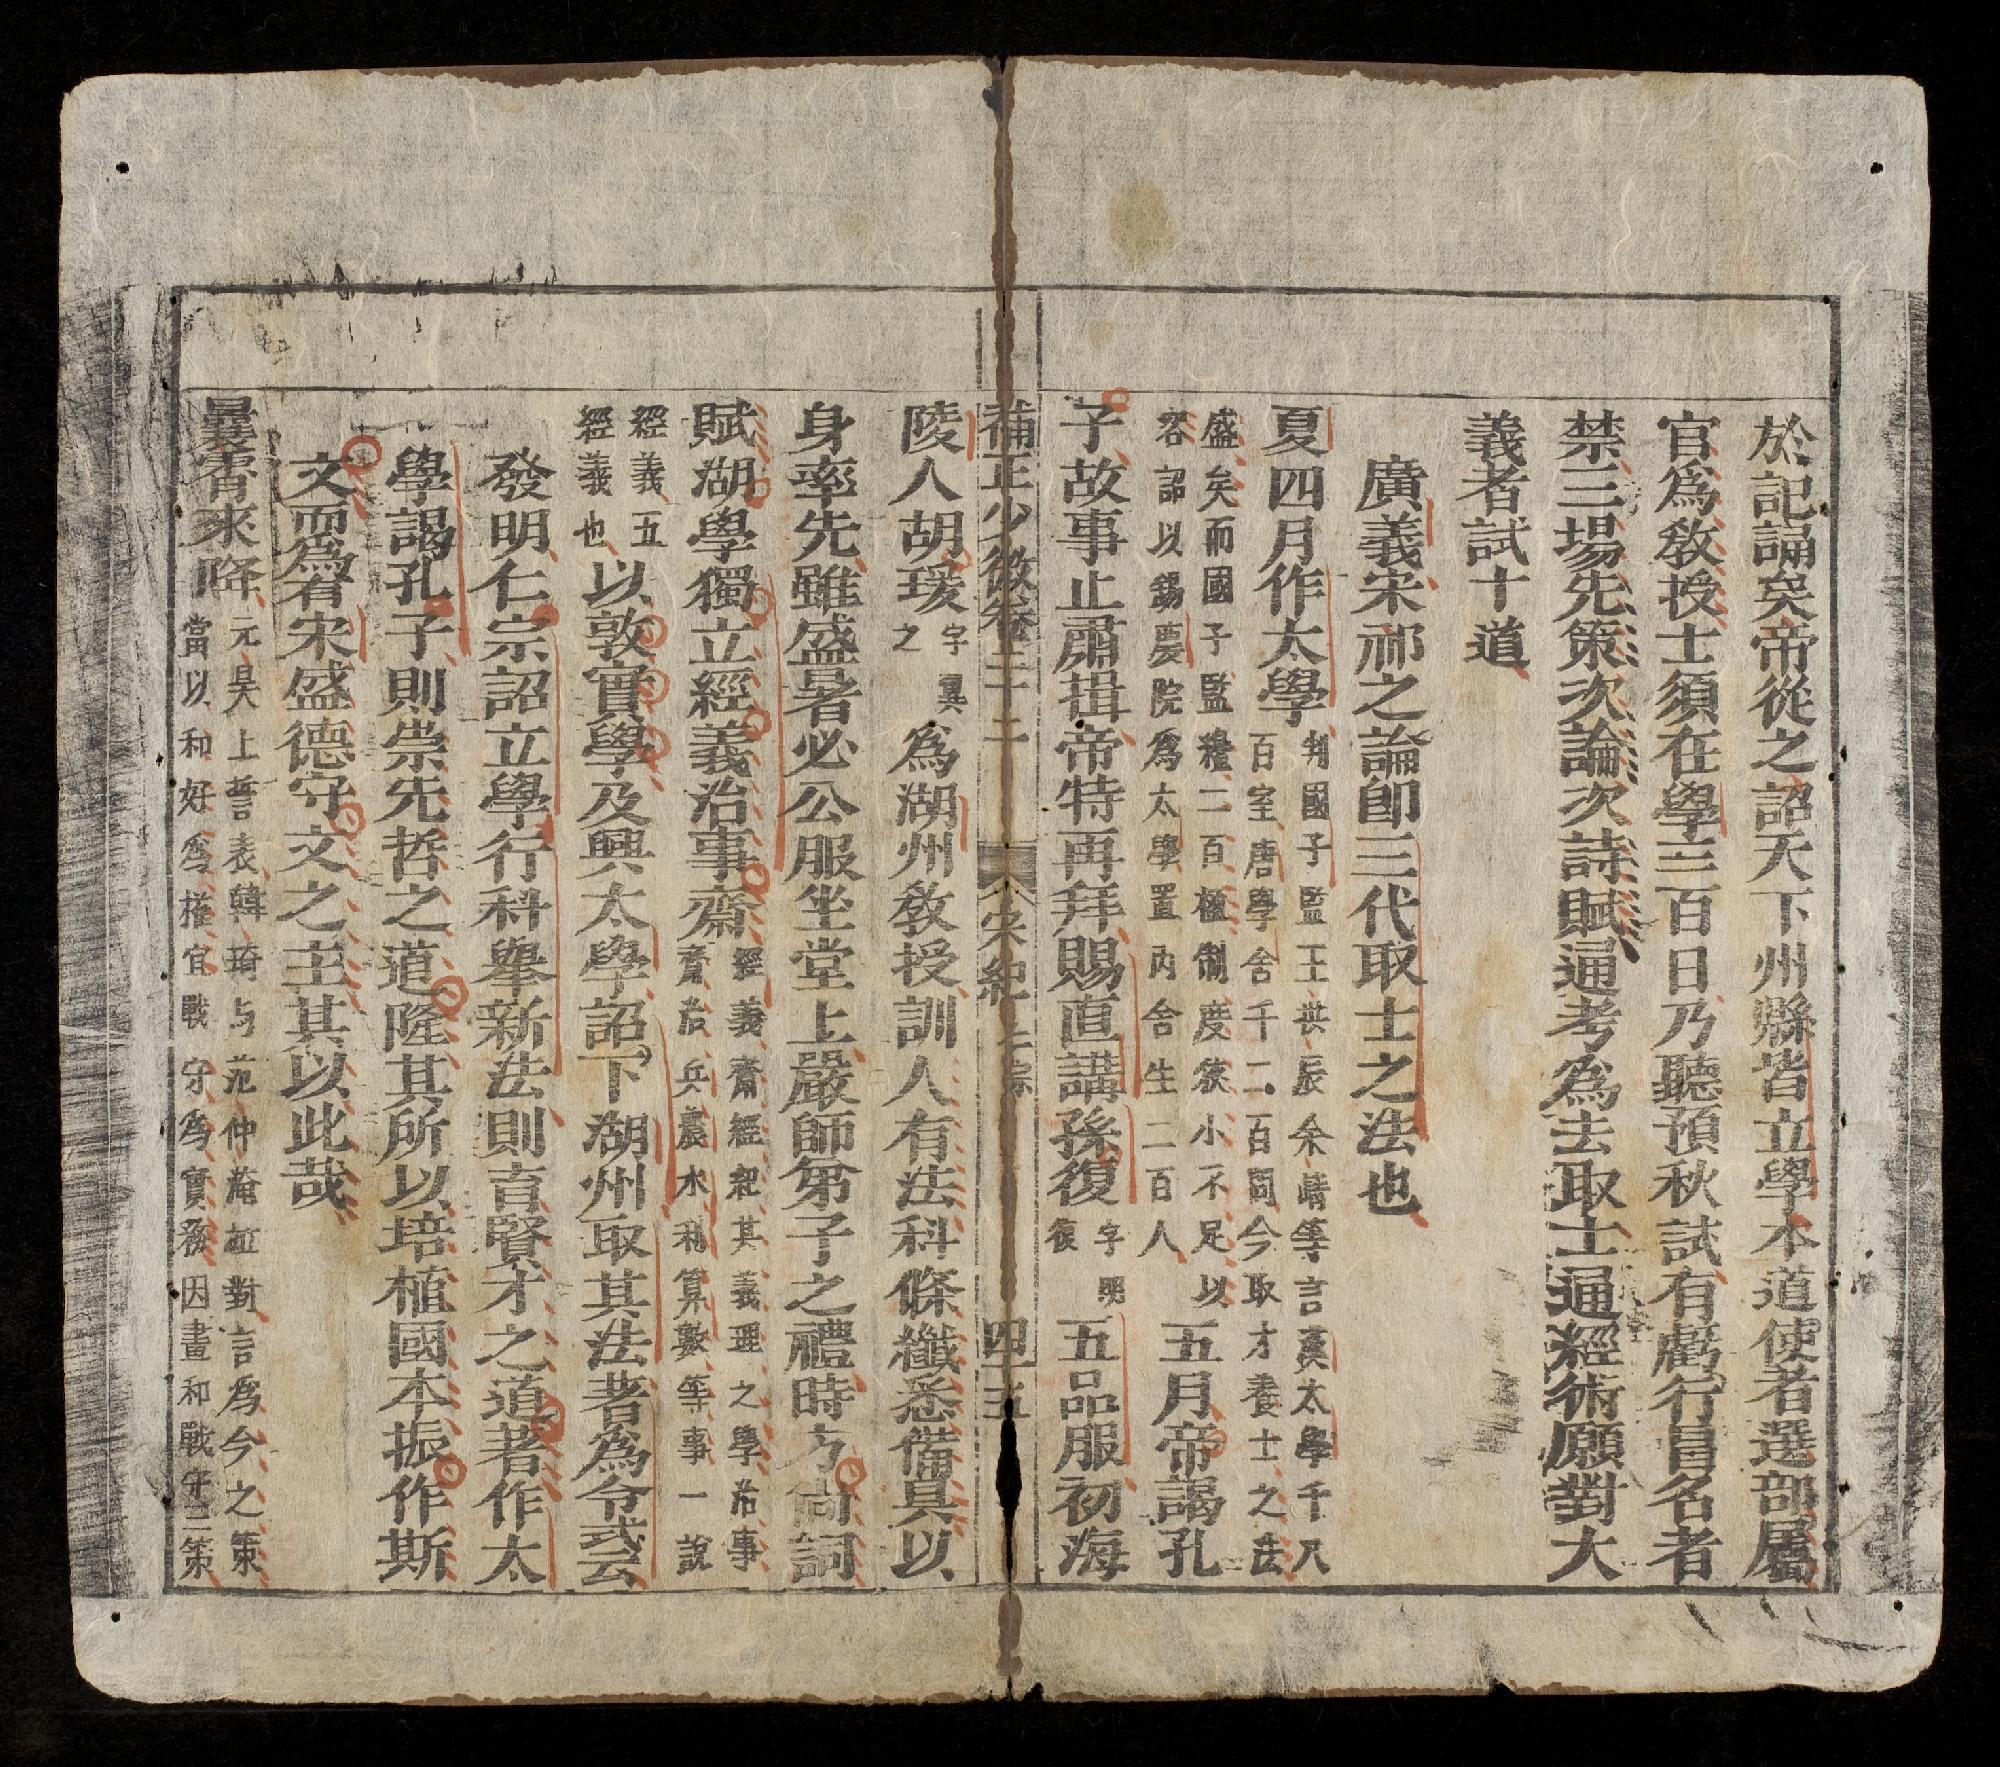 於記誦矣帝從之詔天下州縣皆立學本道使者選部屬
官爲敎授士須在學三百日乃聽預秋試有虧行冒名者
禁三場先策次論次詩賦通考爲去取士通經術願對大
義者試十道
廣義宋祁之論卽三代取士之法也
夏四月作太學判國子監王拱辰余靖等言漢太學千八
百室唐學舍千二百間今取才養士之法
盛矣而國子監纔二百楹制度狹小不足以
容詔以錫慶院爲太學置內舍生二百人五月帝謁孔
子故事止肅揖帝特再拜賜直講孫復字明
復五品服初海
補正少微卷三十二
宋紀 仁宗
四十五
陵人胡瑗字翼
之爲湖州敎授訓人有法科條纖悉備具以
身率先雖盛暑必公服坐堂上嚴師弟子之禮時方尙詞
賦湖學獨立經義治事齋經義齋經衍其義理之學治事
齋治兵農水利算數等事一說
經義五
經義也以敦實學及興太學詔下湖州取其法著爲令式云
發明仁宗詔立學行科擧新法則育賢才之道著作太
學謁孔子則崇先哲之道隆其所以培植國本振作斯
文而爲有宋盛德守文之主其以此哉
曩霄來降元昊上誓表韓琦与范仲淹並對言爲今之策
當以和好爲權宜戰守爲實務因畫和戰守三策